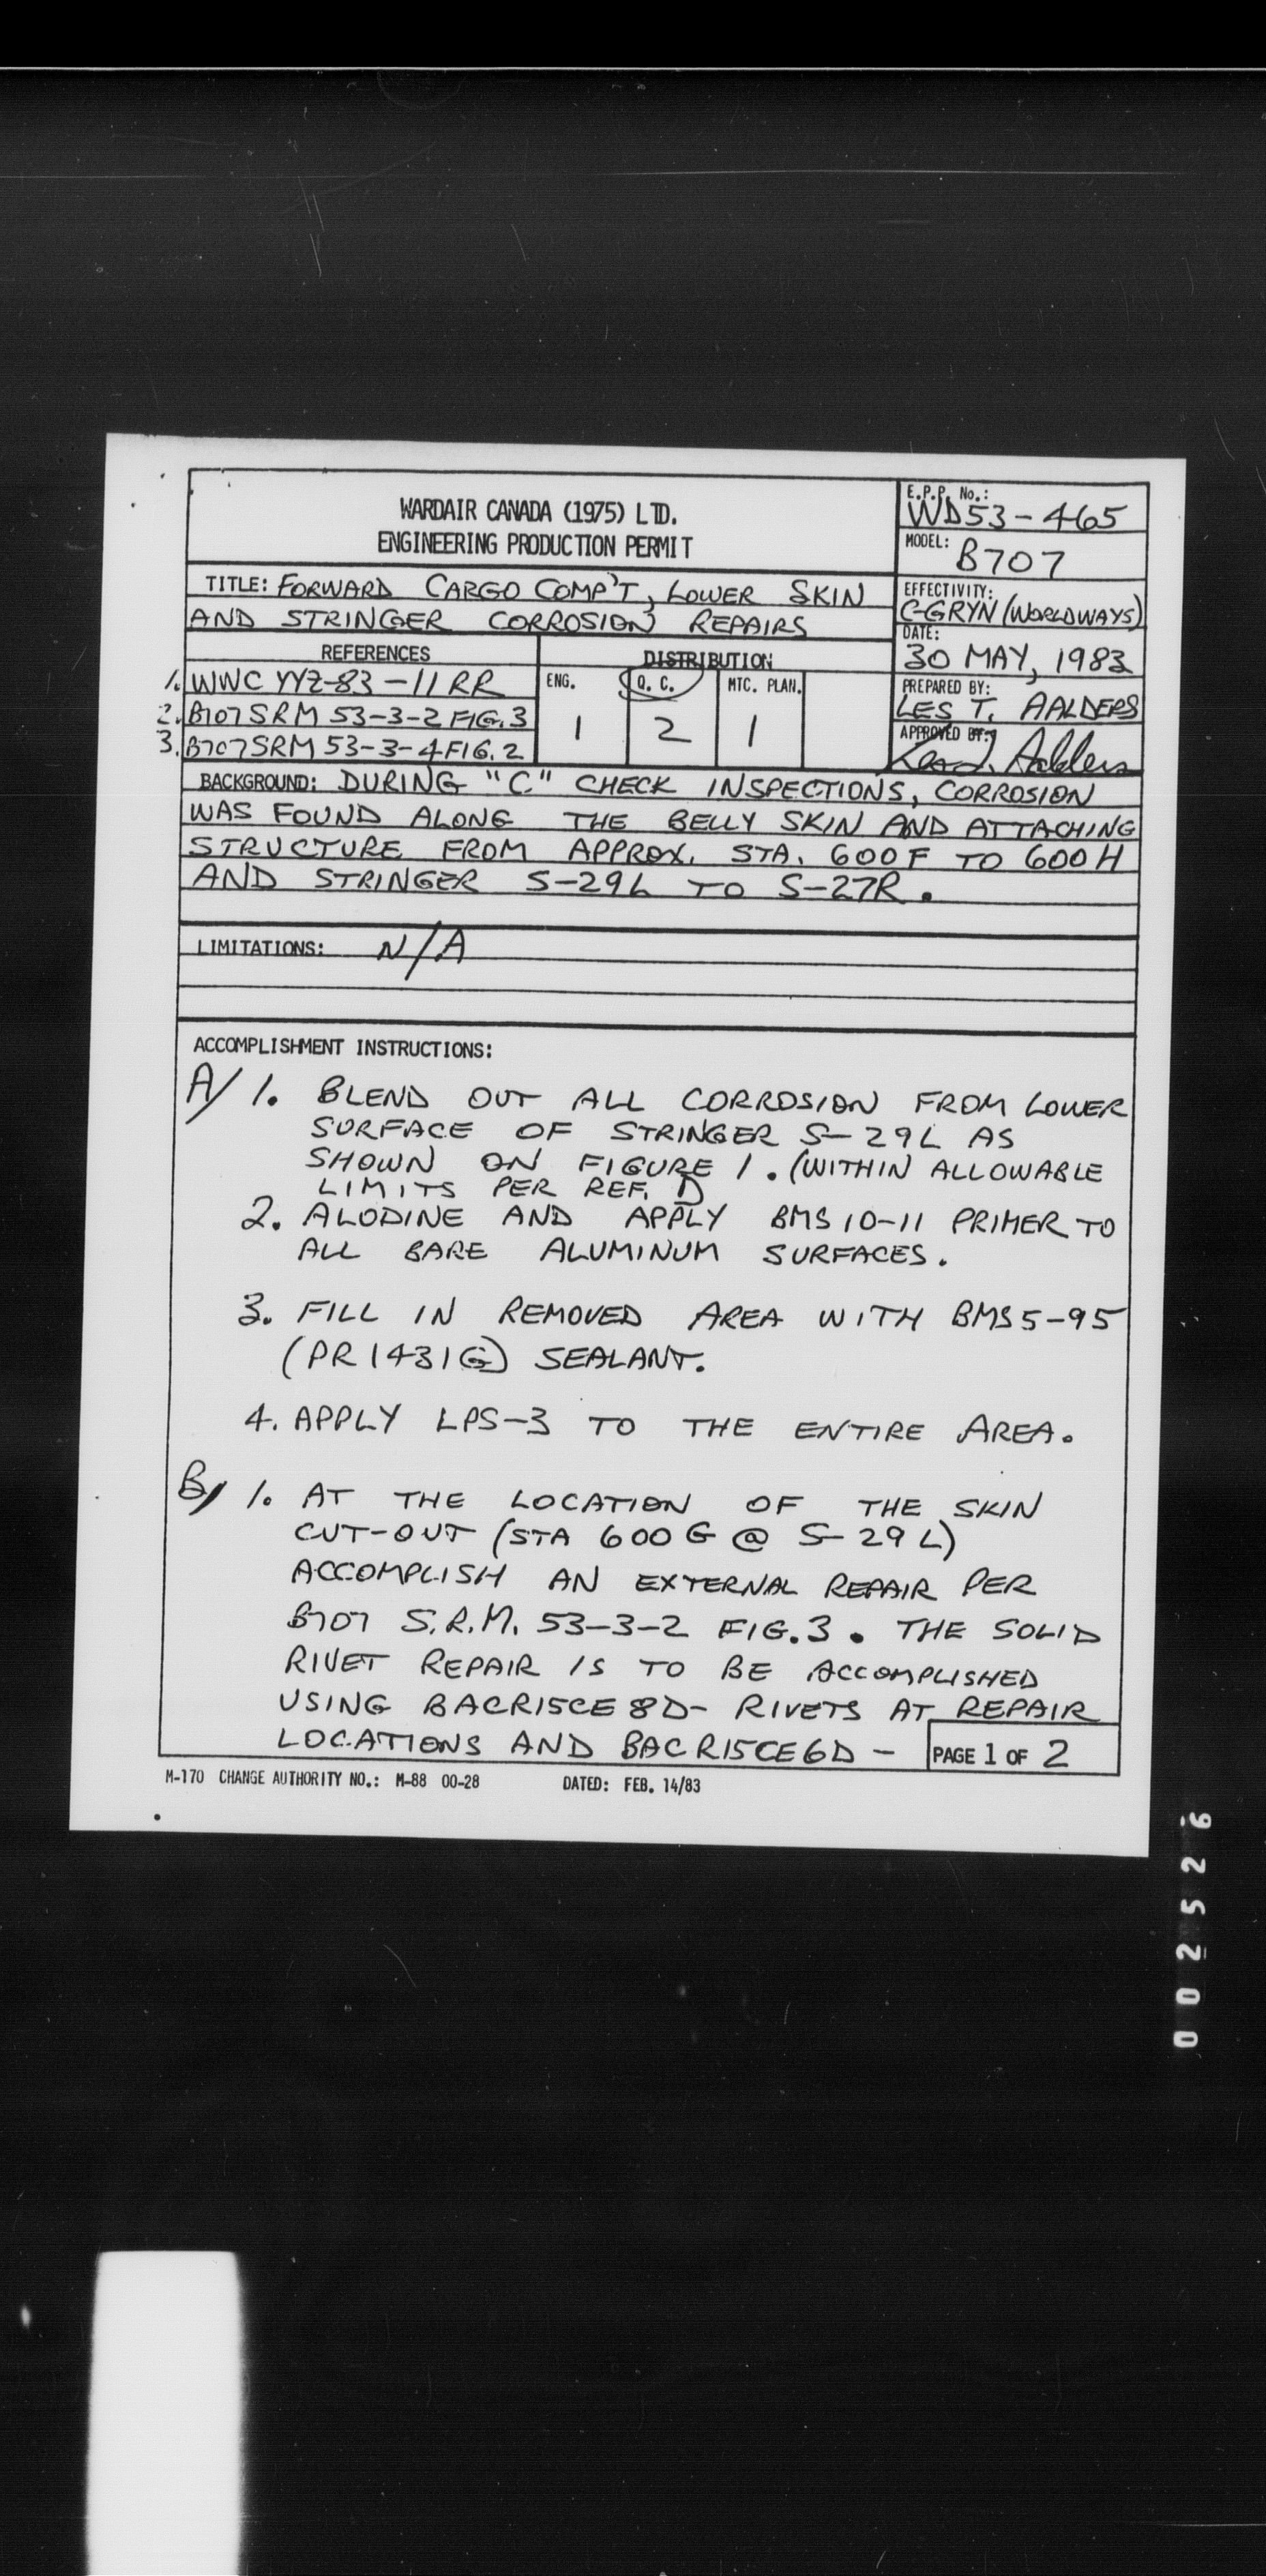 WARDAIR CANADA (1975) LTD.
ENGINEERING PRODUCTION PERMIT
E.P.P. No.:
WD53-465
MODEL: B707
TITLE: FORWARD CARGO COMP'T, LOWER SKIN
AND STRINGER CORROSION REPAIRS
EFFECTIVITY:
C-GRYN (WORLDWAYS)
DATE:
30 MAY, 1983
REFERENCES
1. WWC YYZ-83-11RR
2. B707 SRM 53-3-2 FIG.3
3. B707 SRM 53-3-4 FIG.2
DISTRIBUTION
ENG. Q. C. MTC. PLAN.
1 2 1
PREPARED BY:
LES T. AALDERS
APPROVED BY:
Les T. Aalders
BACKGROUND: DURING "C" CHECK INSPECTIONS, CORROSION
WAS FOUND ALONG THE BELLY SKIN AND ATTACHING
STRUCTURE FROM APPROX. STA. 600F TO 600H
AND STRINGER S-29L TO S-27R.
LIMITATIONS: N/A
ACCOMPLISHMENT INSTRUCTIONS:
A/ 1. BLEND OUT ALL CORROSION FROM LOWER
SURFACE OF STRINGER S-29L AS
SHOWN ON FIGURE 1. (WITHIN ALLOWABLE
LIMITS PER REF. 1)
2. ALODINE AND APPLY BMS 10-11 PRIMER TO
ALL BARE ALUMINUM SURFACES.
3. FILL IN REMOVED AREA WITH BMS 5-95
(PR1431G) SEALANT.
4. APPLY LPS-3 TO THE ENTIRE AREA.
B/ 1. AT THE LOCATION OF THE SKIN
CUT-OUT (STA 600G @ S-29L)
ACCOMPLISH AN EXTERNAL REPAIR PER
B707 S.R.M. 53-3-2 FIG.3. THE SOLID
RIVET REPAIR IS TO BE ACCOMPLISHED
USING BACR15CE8D- RIVETS AT REPAIR
LOCATIONS AND BACR15CE6D-
PAGE 1 OF 2
M-170 CHANGE AUTHORITY NO.: M-88 00-28 DATED: FEB. 14/83
002526